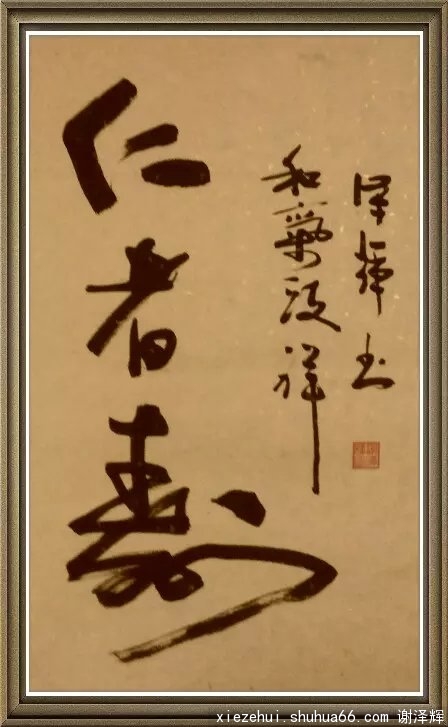 仁者寿
和氣致祥
泽辉书
xiezehui.shuhua66.com 谢泽辉